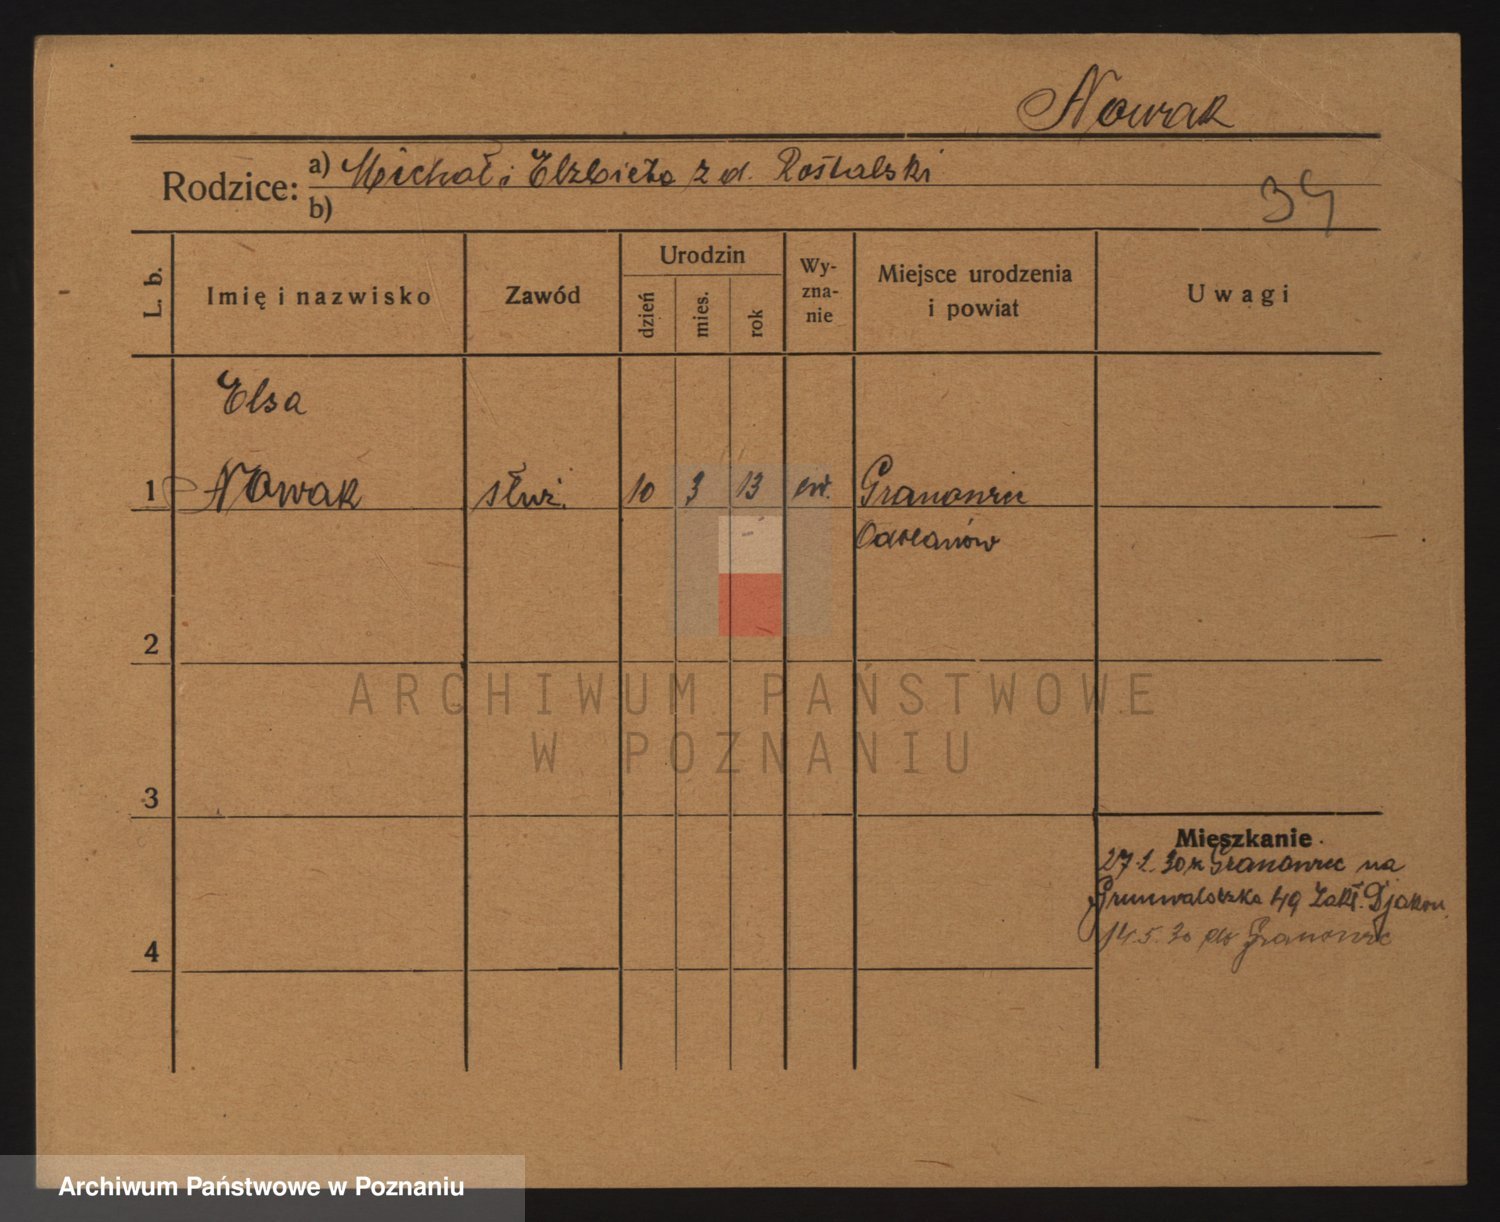 Nowak
Rodzice: a) Michał i Elzbieta z d. Rostalski
b)
34
L. b.
Imię i nazwisko
Zawód
Urodzin
dzień
mies.
rok
Wy-
zna-
nie
Miejsce urodzenia
i powiat
Uwagi
Elsa
1 Nowak służ. 10 3 13 ew. Granowiec
Odolanów
2
ARCHIWUM PAŃSTWOWE
W POZNANIU
3
Mieszkanie
27.2.30 z Granowiec na
Grunwaldzka 49 Zakł. Djakon.
4
14.5.30 do Granowiec
Archiwum Państwowe w Poznaniu